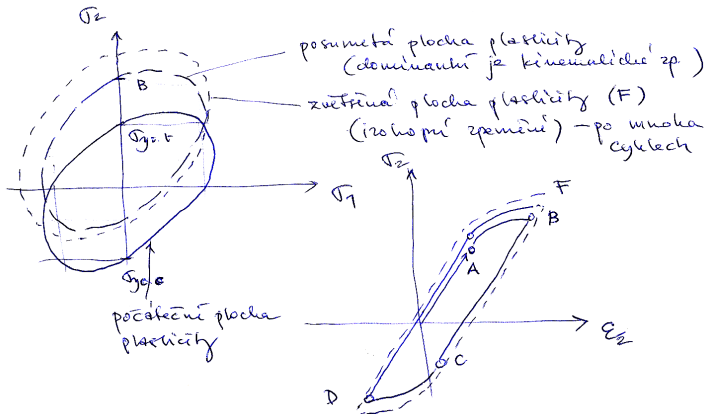 σ2
posunutá plocha plasticity
(dominantní je kinematické zp.)
B
zvětšená plocha plasticity (F)
(izotropní zpevnění) – po mnoha
cyklech
σyc,t
σ1
σ2
F
B
A
σyc,c
počáteční plocha
plasticity
ε2
C
D